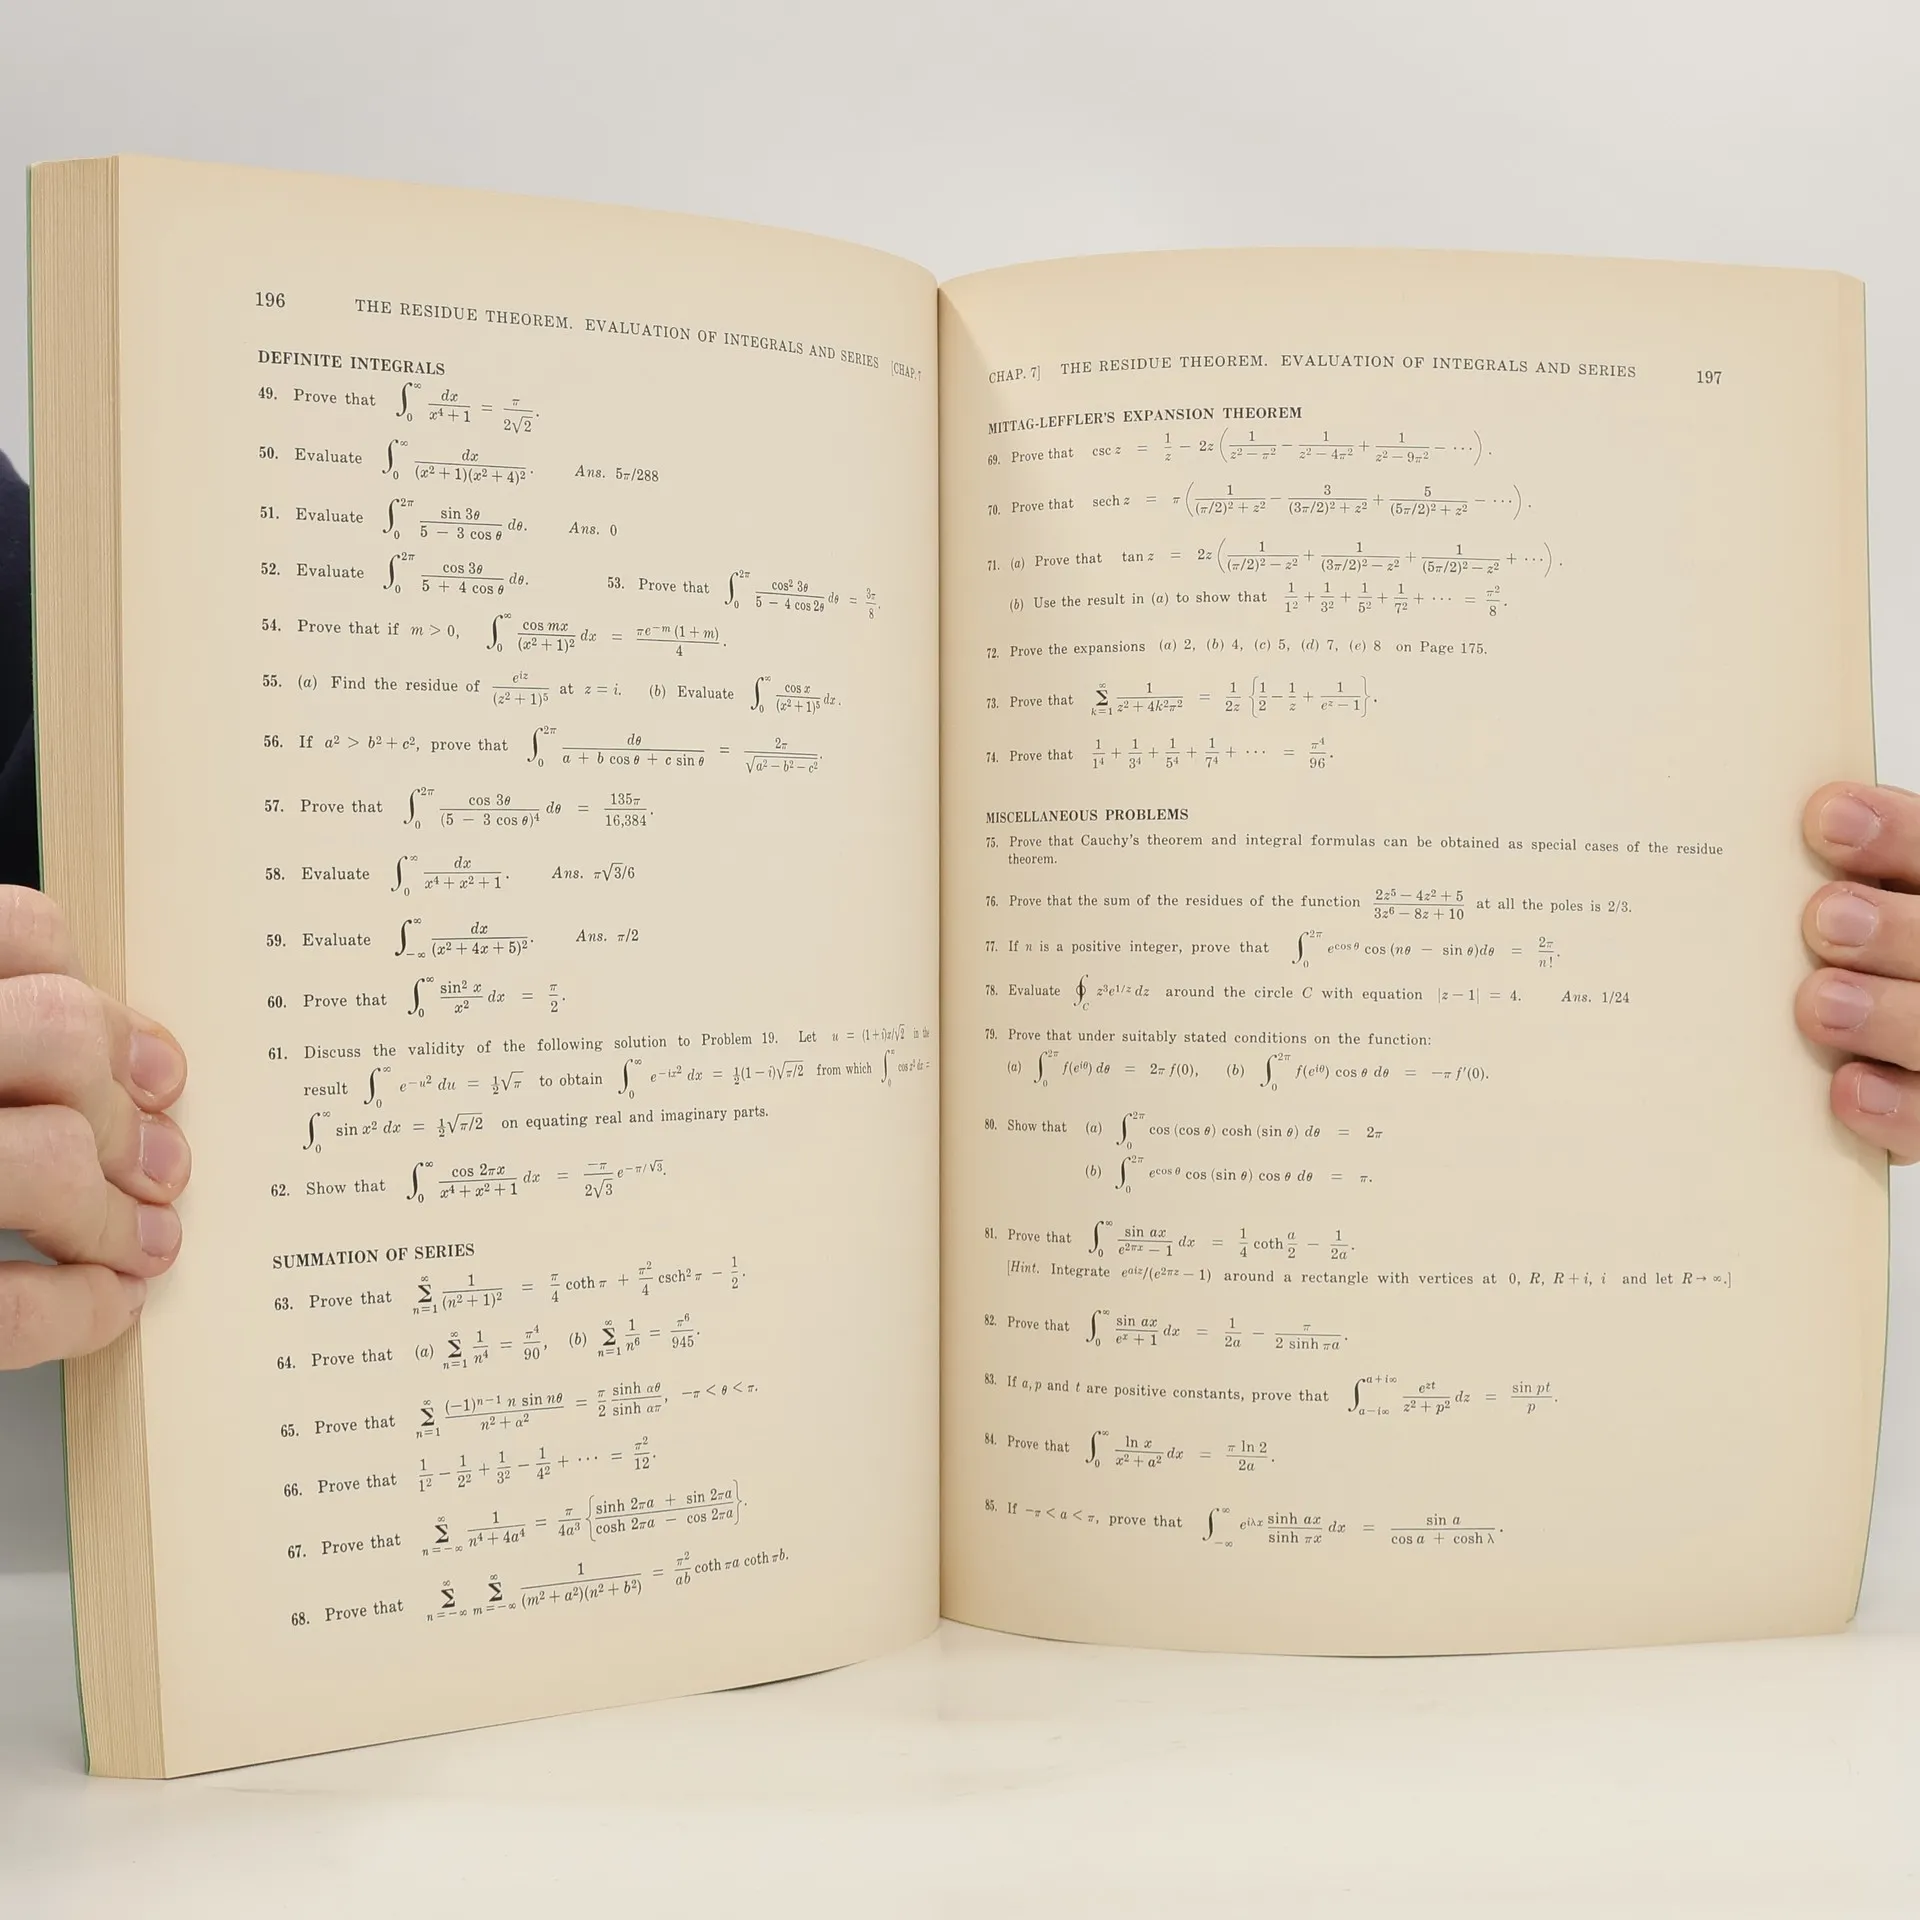 196 THE RESIDUE THEOREM. EVALUATION OF INTEGRALS AND SERIES [CHAP. 7
DEFINITE INTEGRALS
49. Prove that ∫₀^∞ dx/(x⁴ + 1) = π/(2√2).
50. Evaluate ∫₀^∞ dx/((x² + 1)(x² + 4)²). Ans. 5π/288
51. Evaluate ∫₀^{2π} sin 3θ/(5 − 3 cos θ) dθ. Ans. 0
52. Evaluate ∫₀^{2π} cos 3θ/(5 + 4 cos θ) dθ. 53. Prove that ∫₀^{2π} cos² 3θ/(5 − 4 cos 2θ) dθ = 3π/8.
54. Prove that if m > 0, ∫₀^∞ cos mx/(x² + 1)² dx = πe^{−m}(1 + m)/4.
55. (a) Find the residue of e^{iz}/(z² + 1)⁵ at z = i. (b) Evaluate ∫₀^∞ cos x/(x² + 1)⁵ dx.
56. If a² > b² + c², prove that ∫₀^{2π} dθ/(a + b cos θ + c sin θ) = 2π/√(a² − b² − c²).
57. Prove that ∫₀^{2π} cos 3θ/(5 − 3 cos θ)⁴ dθ = 135π/16,384.
58. Evaluate ∫₀^∞ dx/(x⁴ + x² + 1). Ans. π√3/6
59. Evaluate ∫_{−∞}^∞ dx/(x² + 4x + 5)². Ans. π/2
60. Prove that ∫₀^∞ sin² x/x² dx = π/2.
61. Discuss the validity of the following solution to Problem 19. Let u = (1 + i)x/√2 in the
result ∫₀^∞ e^{−u²} du = ½√π to obtain ∫₀^∞ e^{−ix²} dx = ½(1 − i)√(π/2) from which ∫₀^∞ cos x² dx =
∫₀^∞ sin x² dx = ½√(π/2) on equating real and imaginary parts.
62. Show that ∫₀^∞ cos 2πx/(x⁴ + x² + 1) dx = −π/(2√3) e^{−π/√3}.
SUMMATION OF SERIES
63. Prove that Σ_{n=1}^∞ 1/(n² + 1)² = π/4 coth π + π²/4 csch² π − 1/2.
64. Prove that (a) Σ_{n=1}^∞ 1/n⁴ = π⁴/90, (b) Σ_{n=1}^∞ 1/n⁶ = π⁶/945.
65. Prove that Σ_{n=1}^∞ (−1)^{n−1} n sin nθ/(n² + α²) = π/2 sinh αθ/sinh απ, −π < θ < π.
66. Prove that 1/1² − 1/2² + 1/3² − 1/4² + ⋯ = π²/12.
67. Prove that Σ_{n=−∞}^∞ 1/(n⁴ + 4a⁴) = π/(4a³) {(sinh 2πa + sin 2πa)/(cosh 2πa − cos 2πa)}.
68. Prove that Σ_{n=−∞}^∞ Σ_{m=−∞}^∞ 1/((m² + a²)(n² + b²)) = π²/(ab) coth πa coth πb.
CHAP. 7] THE RESIDUE THEOREM. EVALUATION OF INTEGRALS AND SERIES 197
MITTAG-LEFFLER'S EXPANSION THEOREM
69. Prove that csc z = 1/z − 2z (1/(z² − π²) − 1/(z² − 4π²) + 1/(z² − 9π²) − ⋯).
70. Prove that sech z = π (1/((π/2)² + z²) − 3/((3π/2)² + z²) + 5/((5π/2)² + z²) − ⋯).
71. (a) Prove that tan z = 2z (1/((π/2)² − z²) + 1/((3π/2)² − z²) + 1/((5π/2)² − z²) + ⋯).
(b) Use the result in (a) to show that 1/1² + 1/3² + 1/5² + 1/7² + ⋯ = π²/8.
72. Prove the expansions (a) 2, (b) 4, (c) 5, (d) 7, (e) 8 on Page 175.
73. Prove that Σ_{k=1}^∞ 1/(z² + 4k²π²) = 1/(2z) {1/2 − 1/z + 1/(e^z − 1)}.
74. Prove that 1/1⁴ + 1/3⁴ + 1/5⁴ + 1/7⁴ + ⋯ = π⁴/96.
MISCELLANEOUS PROBLEMS
75. Prove that Cauchy's theorem and integral formulas can be obtained as special cases of the residue
theorem.
76. Prove that the sum of the residues of the function (2z⁵ − 4z² + 5)/(3z⁶ − 8z + 10) at all the poles is 2/3.
77. If n is a positive integer, prove that ∫₀^{2π} e^{cos θ} cos (nθ − sin θ)dθ = 2π/n!.
78. Evaluate ∮_C z³e^{1/z} dz around the circle C with equation |z − 1| = 4. Ans. 1/24
79. Prove that under suitably stated conditions on the function:
(a) ∫₀^{2π} f(e^{iθ}) dθ = 2π f(0), (b) ∫₀^{2π} f(e^{iθ}) cos θ dθ = −π f′(0).
80. Show that (a) ∫₀^{2π} cos (cos θ) cosh (sin θ) dθ = 2π
(b) ∫₀^{2π} e^{cos θ} cos (sin θ) cos θ dθ = π.
81. Prove that ∫₀^∞ sin ax/(e^{2πx} − 1) dx = 1/4 coth a/2 − 1/(2a).
[Hint. Integrate e^{aiz}/(e^{2πz} − 1) around a rectangle with vertices at 0, R, R + i, i and let R → ∞.]
82. Prove that ∫₀^∞ sin ax/(e^x + 1) dx = 1/(2a) − π/(2 sinh πa).
83. If a, p and t are positive constants, prove that ∫_{a−i∞}^{a+i∞} e^{zt}/(z² + p²) dz = sin pt/p.
84. Prove that ∫₀^∞ ln x/(x² + a²) dx = π ln 2/(2a).
85. If −π < a < π, prove that ∫_{−∞}^∞ e^{iλx} sinh ax/sinh πx dx = sin a/(cos a + cosh λ).